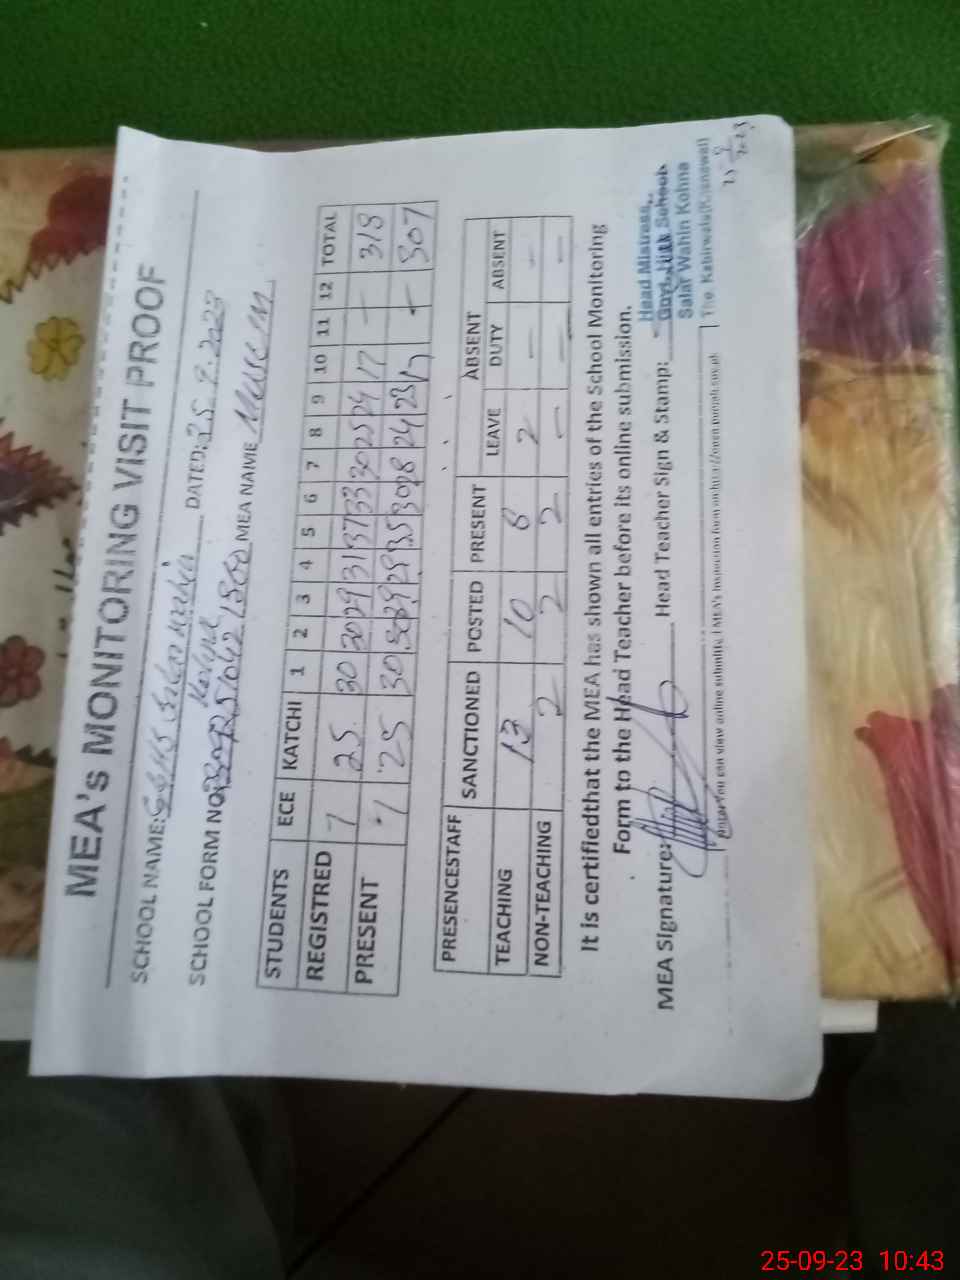 MEA's MONITORING VISIT PROOF
SCHOOL NAME: GGHS DATED: 25.9.2023
SCHOOL FORM NO MEA NAME
STUDENTS ECE KATCHI 1 2 3 4 5 6 7 8 9 10 11 12 TOTAL
REGISTRED 7 25 30 30 29 31 37 33 30 25 24 17 — 318
PRESENT 7 25 30 30 29 29 35 30 28 24 23 17 - 307
PRESENCESTAFF SANCTIONED POSTED PRESENT ABSENT
LEAVE DUTY ABSENT
TEACHING 13 10 8 2 — —
NON-TEACHING 2 2 2 — — —
It is certifiedthat the MEA has shown all entries of the School Monitoring
Form to the Head Teacher before its online submission.
MEA SIgnature: Head Teacher Sign & Stamp:
Head Mistress
Govt. High School
Salar Wahin Kohna
The. Kabirwala(Khanewal)
25 9 2023
You can view online submitted MEA's inspection form on
25-09-23 10:43